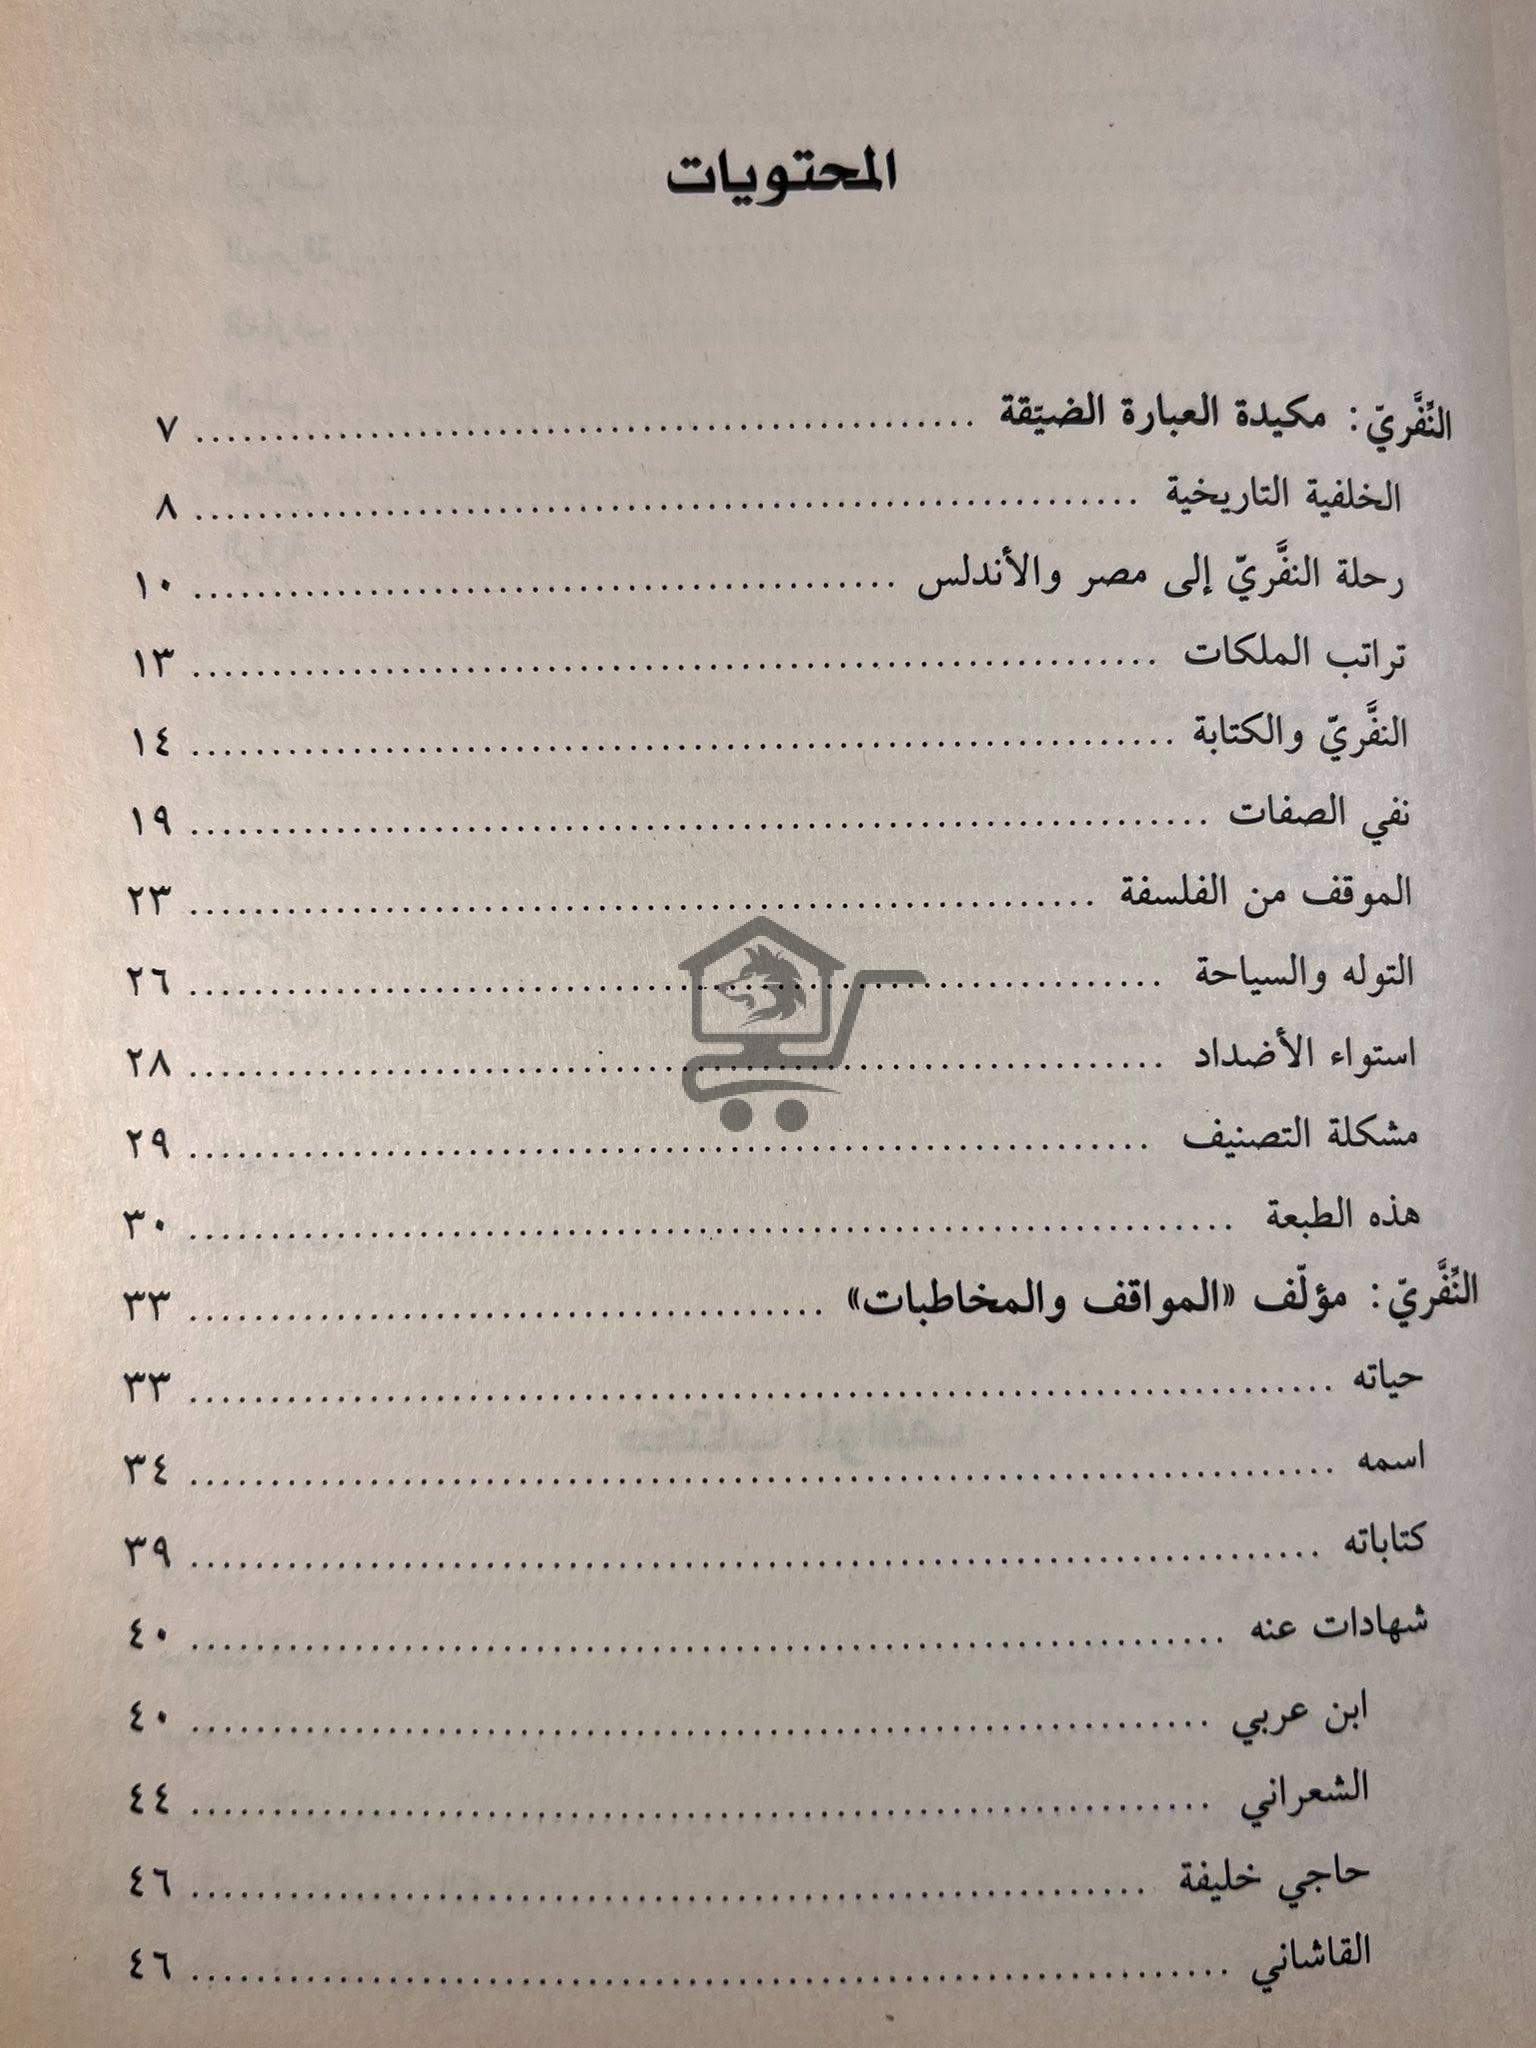 المحتويات
النِّفَّريّ: مكيدة العبارة الضيّقة ........................................ ٧
الخلفية التاريخية ........................................ ٨
رحلة النفَّريّ إلى مصر والأندلس ........................................ ١٠
تراتب الملكات ........................................ ١٣
النفَّريّ والكتابة ........................................ ١٤
نفي الصفات ........................................ ١٩
الموقف من الفلسفة ........................................ ٢٣
التوله والسياحة ........................................ ٢٦
استواء الأضداد ........................................ ٢٨
مشكلة التصنيف ........................................ ٢٩
هذه الطبعة ........................................ ٣٠
النِّفَّريّ: مؤلّف «المواقف والمخاطبات» ........................................ ٣٣
حياته ........................................ ٣٣
اسمه ........................................ ٣٤
كتاباته ........................................ ٣٩
شهادات عنه ........................................ ٤٠
ابن عربي ........................................ ٤٠
الشعراني ........................................ ٤٤
حاجي خليفة ........................................ ٤٦
القاشاني ........................................ ٤٦